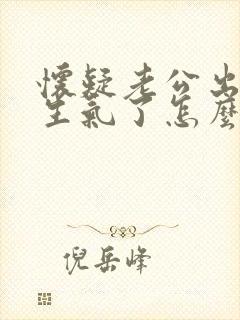 懷疑老公出
生氣了怎麼
倪岳峰